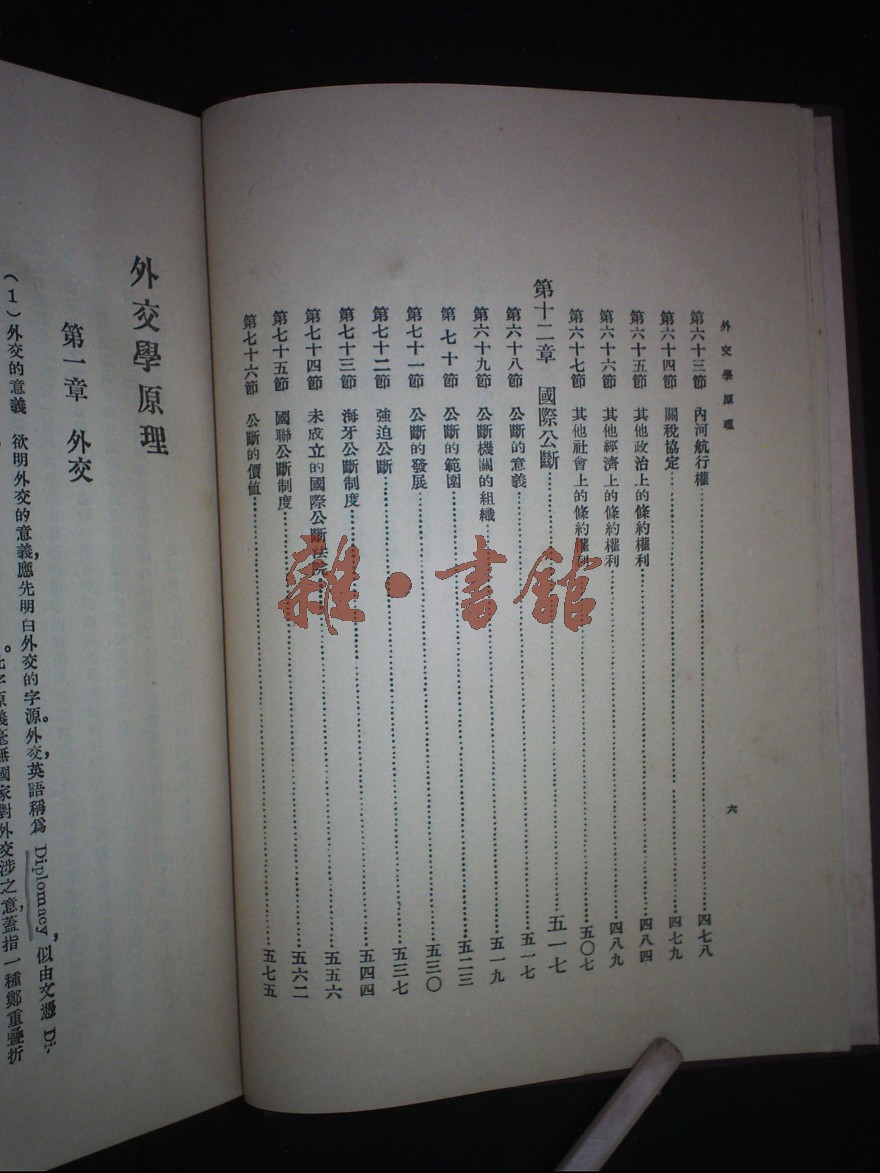 外交學原理
六
第六十三節 內河航行權……四七八
第六十四節 關稅協定……四七九
第六十五節 其他政治上的條約權利……四八四
第六十六節 其他經濟上的條約權利……四八九
第六十七節 其他社會上的條約權利……五〇七
第十二章 國際公斷……五一七
第六十八節 公斷的意義……五一七
第六十九節 公斷機關的組織……五一九
第七十節 公斷的範圍……五二三
第七十一節 公斷的發展……五三〇
第七十二節 強迫公斷……五三七
第七十三節 海牙公斷制度……五四四
第七十四節 未成立的國際公斷法院……五五六
第七十五節 國聯公斷制度……五六二
第七十六節 公斷的價值……五七五
雜·書館
外交學原理
第一章 外交
(1)外交的意義 欲明外交的意義,應先明白外交的字源。外交,英語稱爲 Diplomacy,似由文憑 Di-
。此字原義毫無國家對外交涉之意,蓋指一種鄭重疊折